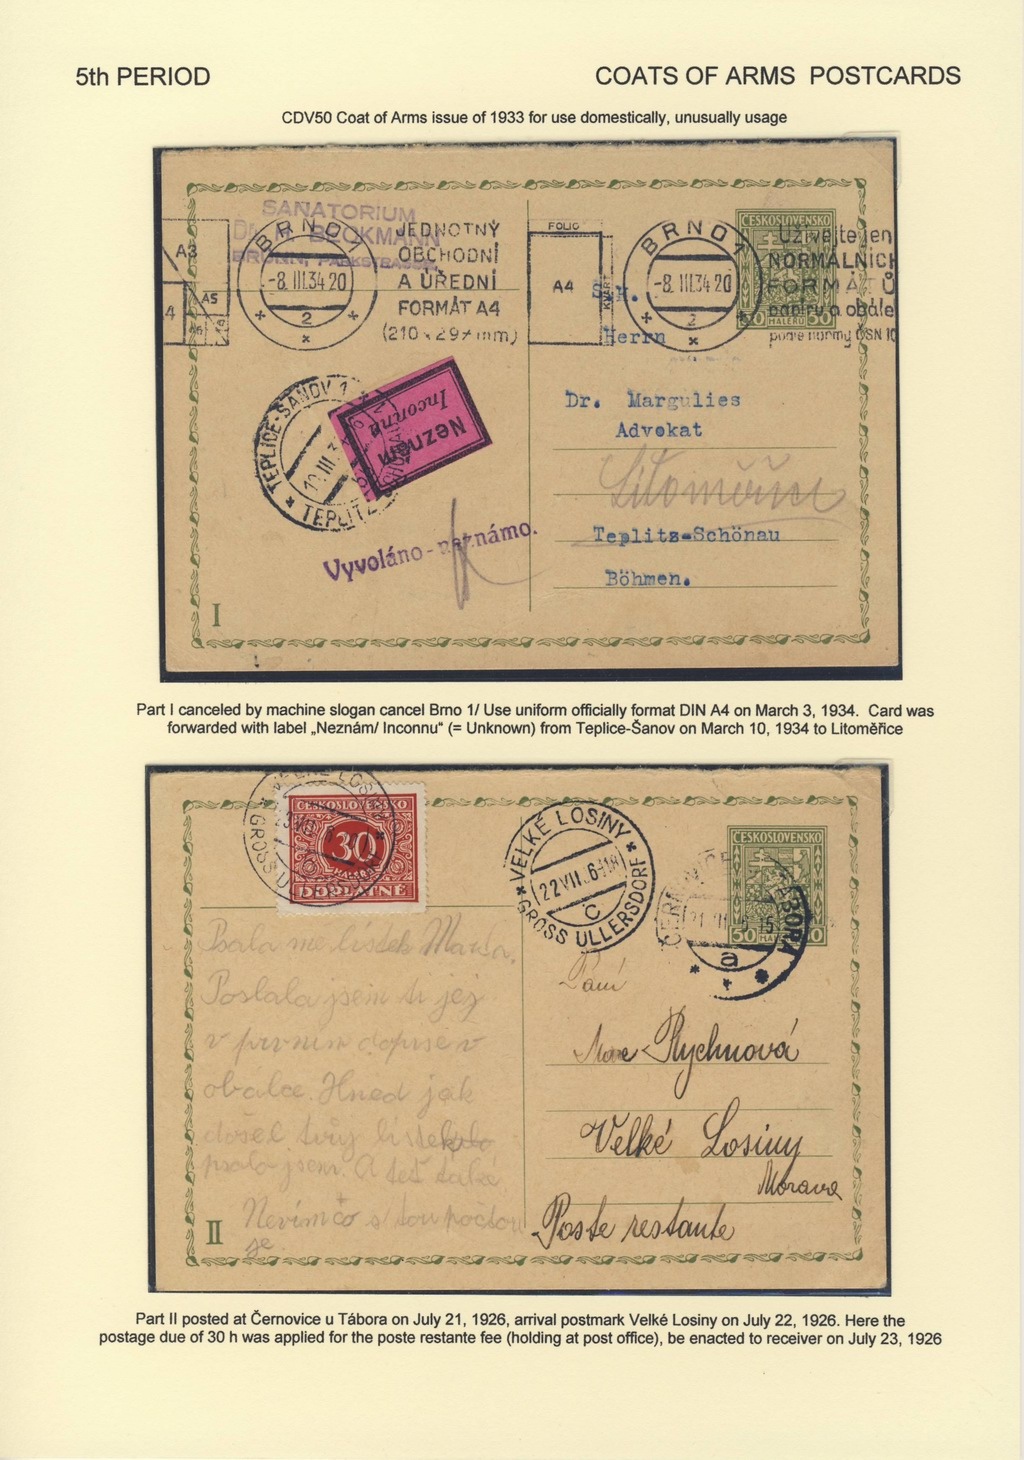 5th PERIOD
COATS OF ARMS POSTCARDS
CDV50 Coat of Arms issue of 1933 for use domestically, unusually usage
SANATORIUM
BECKMANN
BRÜNN, PARKSTRASSE
A3
A5
4
BRNO 1
-8.III.34 20
2
JEDNOTNÝ
OBCHODNÍ
A ÚŘEDNÍ
FORMÁT A4
(210 × 297 mm)
FOLIO
A4
KVART
BRNO 1
-8.III.34 20
2
ČESKOSLOVENSKO
50 HALÉŘŮ 50
Užívejte jen
NORMÁLNÍCH
FORMÁTŮ
papíru a obále
podle normy ČSN 10
Herrn
Dr. Margulies
Advokat
Litoměřice
Teplitz-Schönau
Böhmen.
TEPLICE-ŠANOV 1
10.III.3
TEPLITZ
Neznám
Inconnu
Vyvoláno - neznámo.
I
Part I canceled by machine slogan cancel Brno 1/ Use uniform officially format DIN A4 on March 3, 1934. Card was
forwarded with label „Neznám/ Inconnu“ (= Unknown) from Teplice-Šanov on March 10, 1934 to Litoměřice
VELKÉ LOSINY
GROSS ULLERSDORF
ČESKOSLOVENSKO
30
HALÉŘŮ
DOPLATNÉ
VELKÉ LOSINY
22 VII. 6-18
C
GROSS ULLERSDORF
ČESKOSLOVENSKO
50
ČERNOVICE
TÁBORA
a
Psala me lístek
Poslala jsem ti jej
v prvním dopise v
obálce. Hned jak
došel tvůj
psala jsem. A teď také
Nevím čo s tou počtou
je.
Paní
Rychnová
Velké Losiny
Morava
Poste restante
II
Part II posted at Černovice u Tábora on July 21, 1926, arrival postmark Velké Losiny on July 22, 1926. Here the
postage due of 30 h was applied for the poste restante fee (holding at post office), be enacted to receiver on July 23, 1926